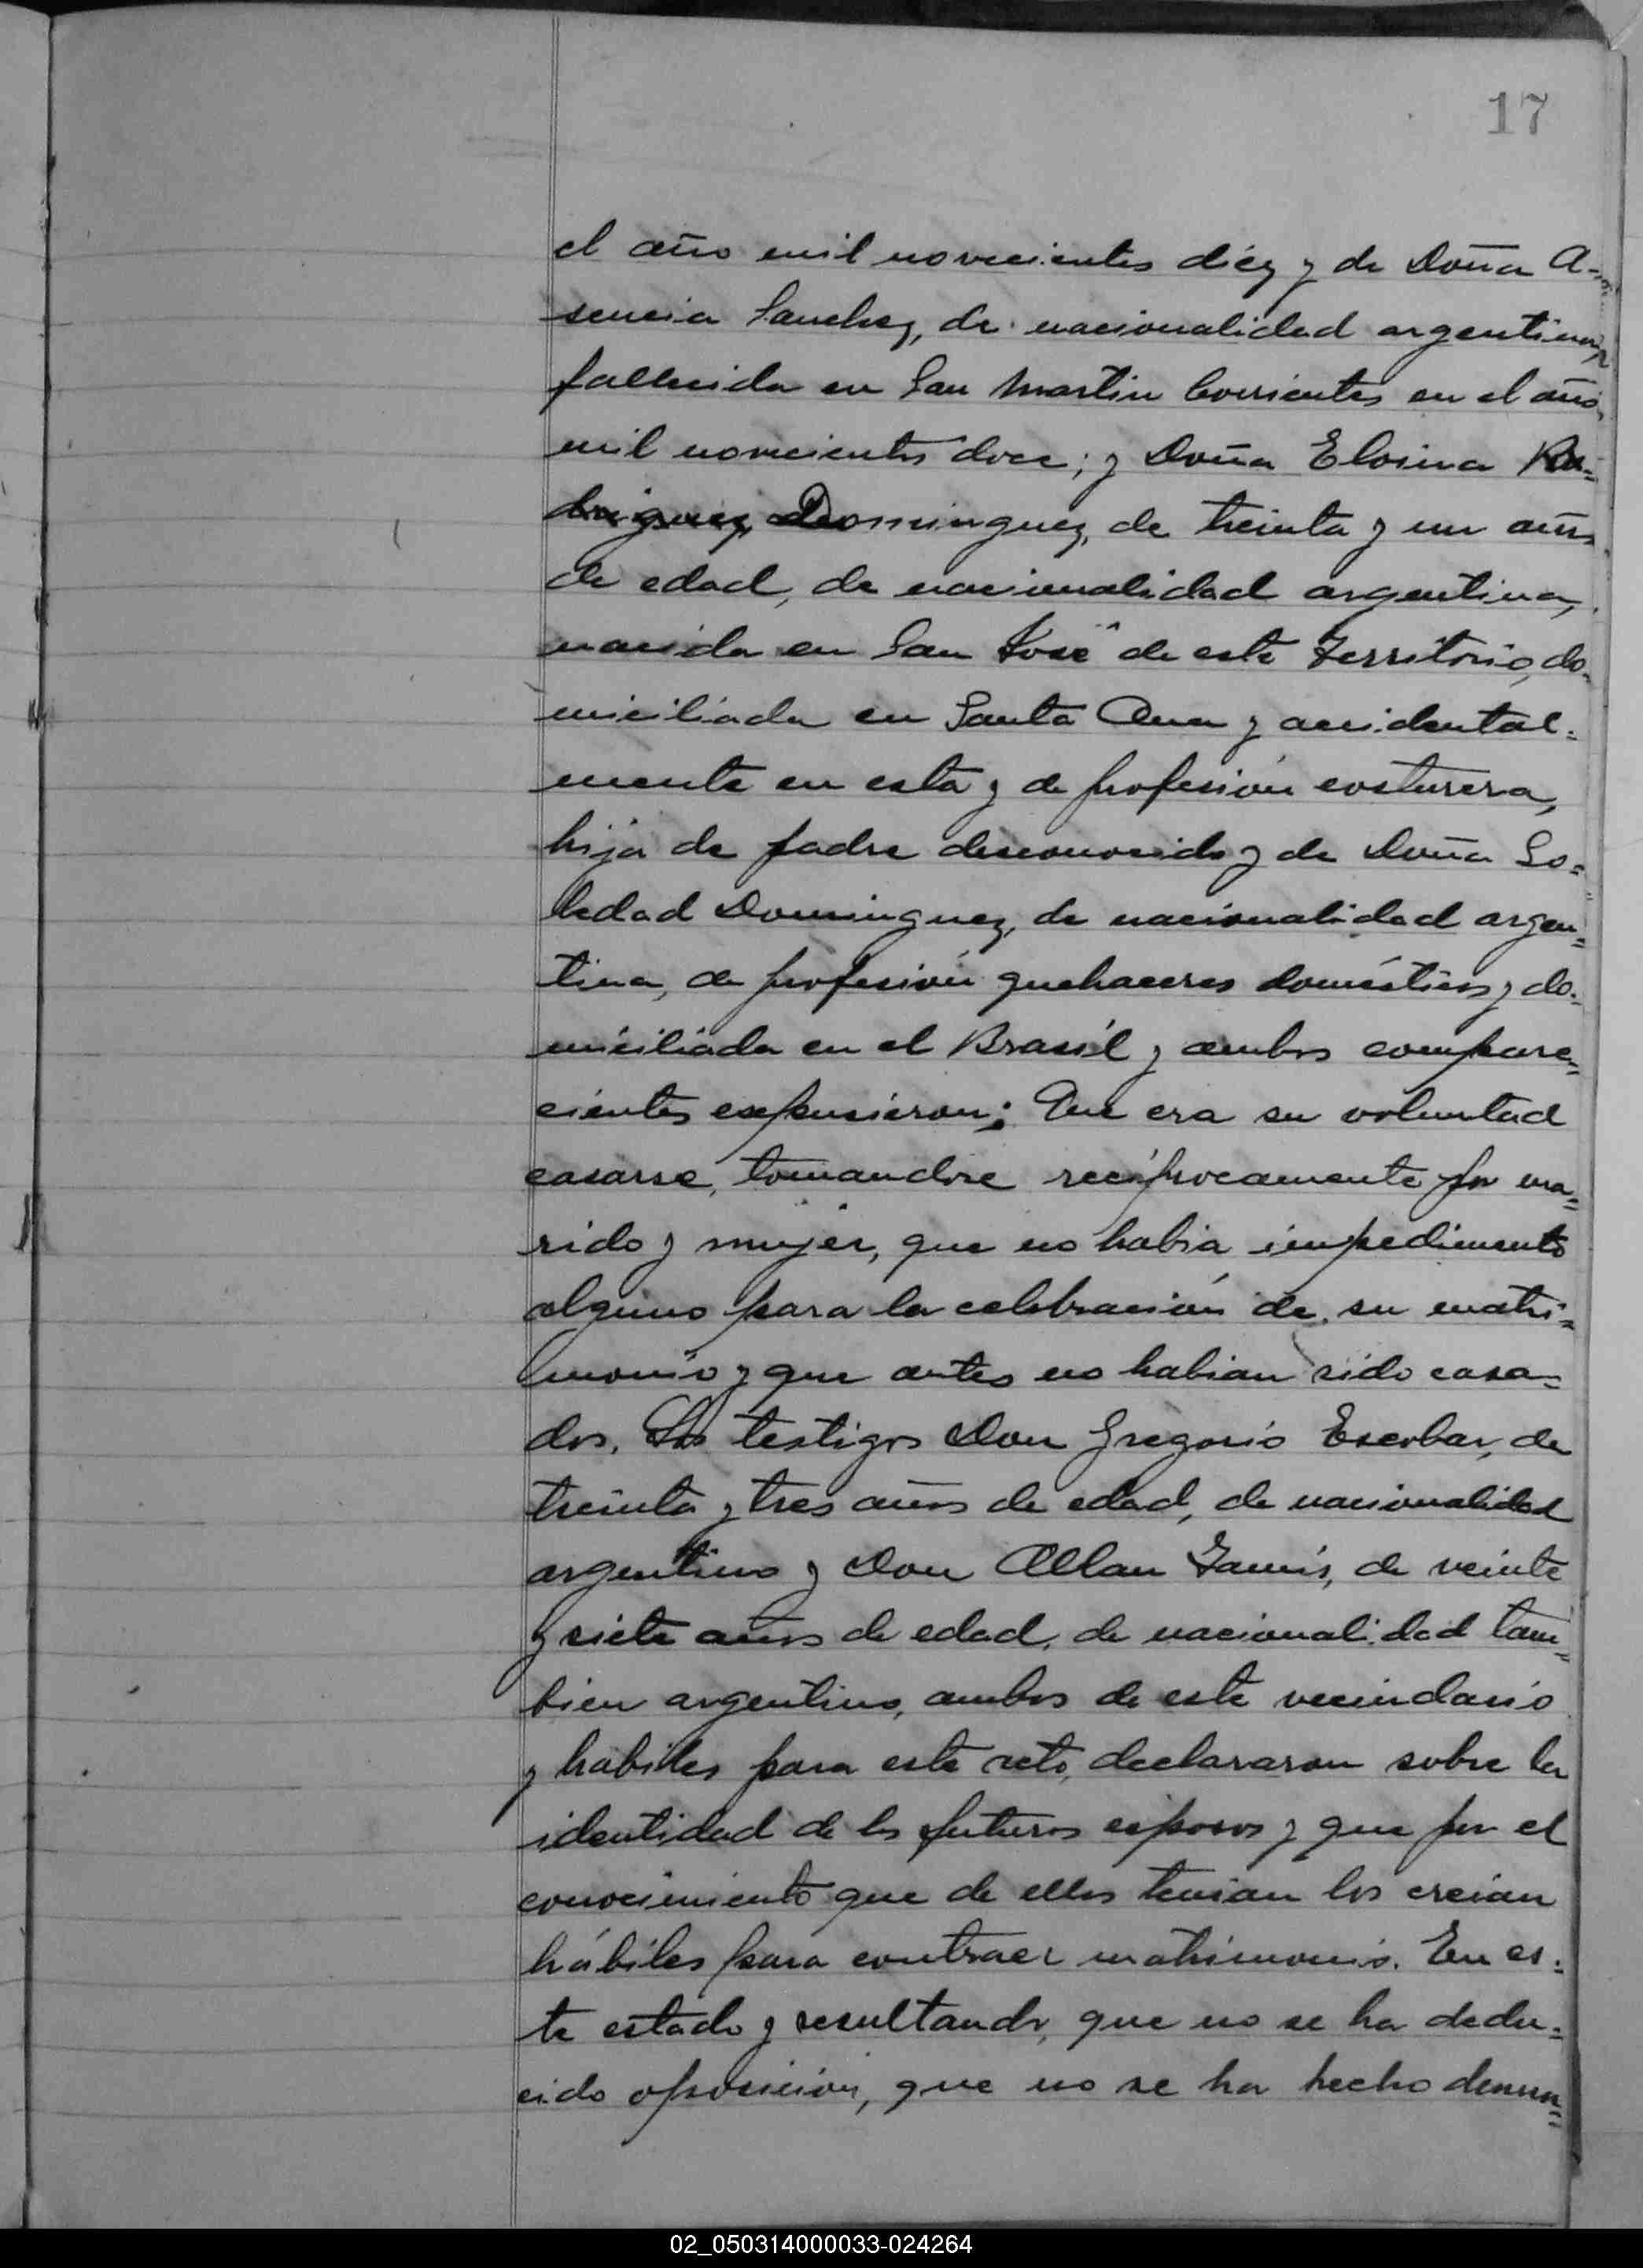 17
el año mil novecientos diéz y de Doña A-
sencia Sanchez, de nacionalidad argentina,
fallecida en San Martin Corrientes en el año
mil novecientos doce; y Doña Eloina Ro=
driguez, Dominguez, de treinta y un años
de edad, de nacionalidad argentina,
nacida en San José de este Territorio, do-
miciliada en Santa Ana y accidental=
mente en esta y de profesión costurera,
hija de padre desconocido y de Doña So=
ledad Dominguez, de nacionalidad argen=
tina, de profesión quehaceres domésticos y do=
miciliada en el Brasil y ambos compare=
cientes expusieron: Que era su voluntad
casarse, tomandose reciprocamente por ma=
rido y mujer, que no habia impedimento
alguno para la celebración de su matri=
monio y que antes no habian sido casa=
dos. Los testigos Don Gregorio Escobar, de
treinta y tres años de edad, de nacionalidad
argentino y Don Allan de veinte
y siete años de edad, de nacionalidad tam=
bien argentino, ambos de este vecindario
y habiles para este acto, declararon sobre la
identidad de los futuros esposos y que por el
conocimiento que de ellos tenian los creian
hábiles para contraer matrimonio. En es=
te estado y resultando, que no se ha dedu=
cido oposición, que no se ha hecho denun=
02_050314000033-024264